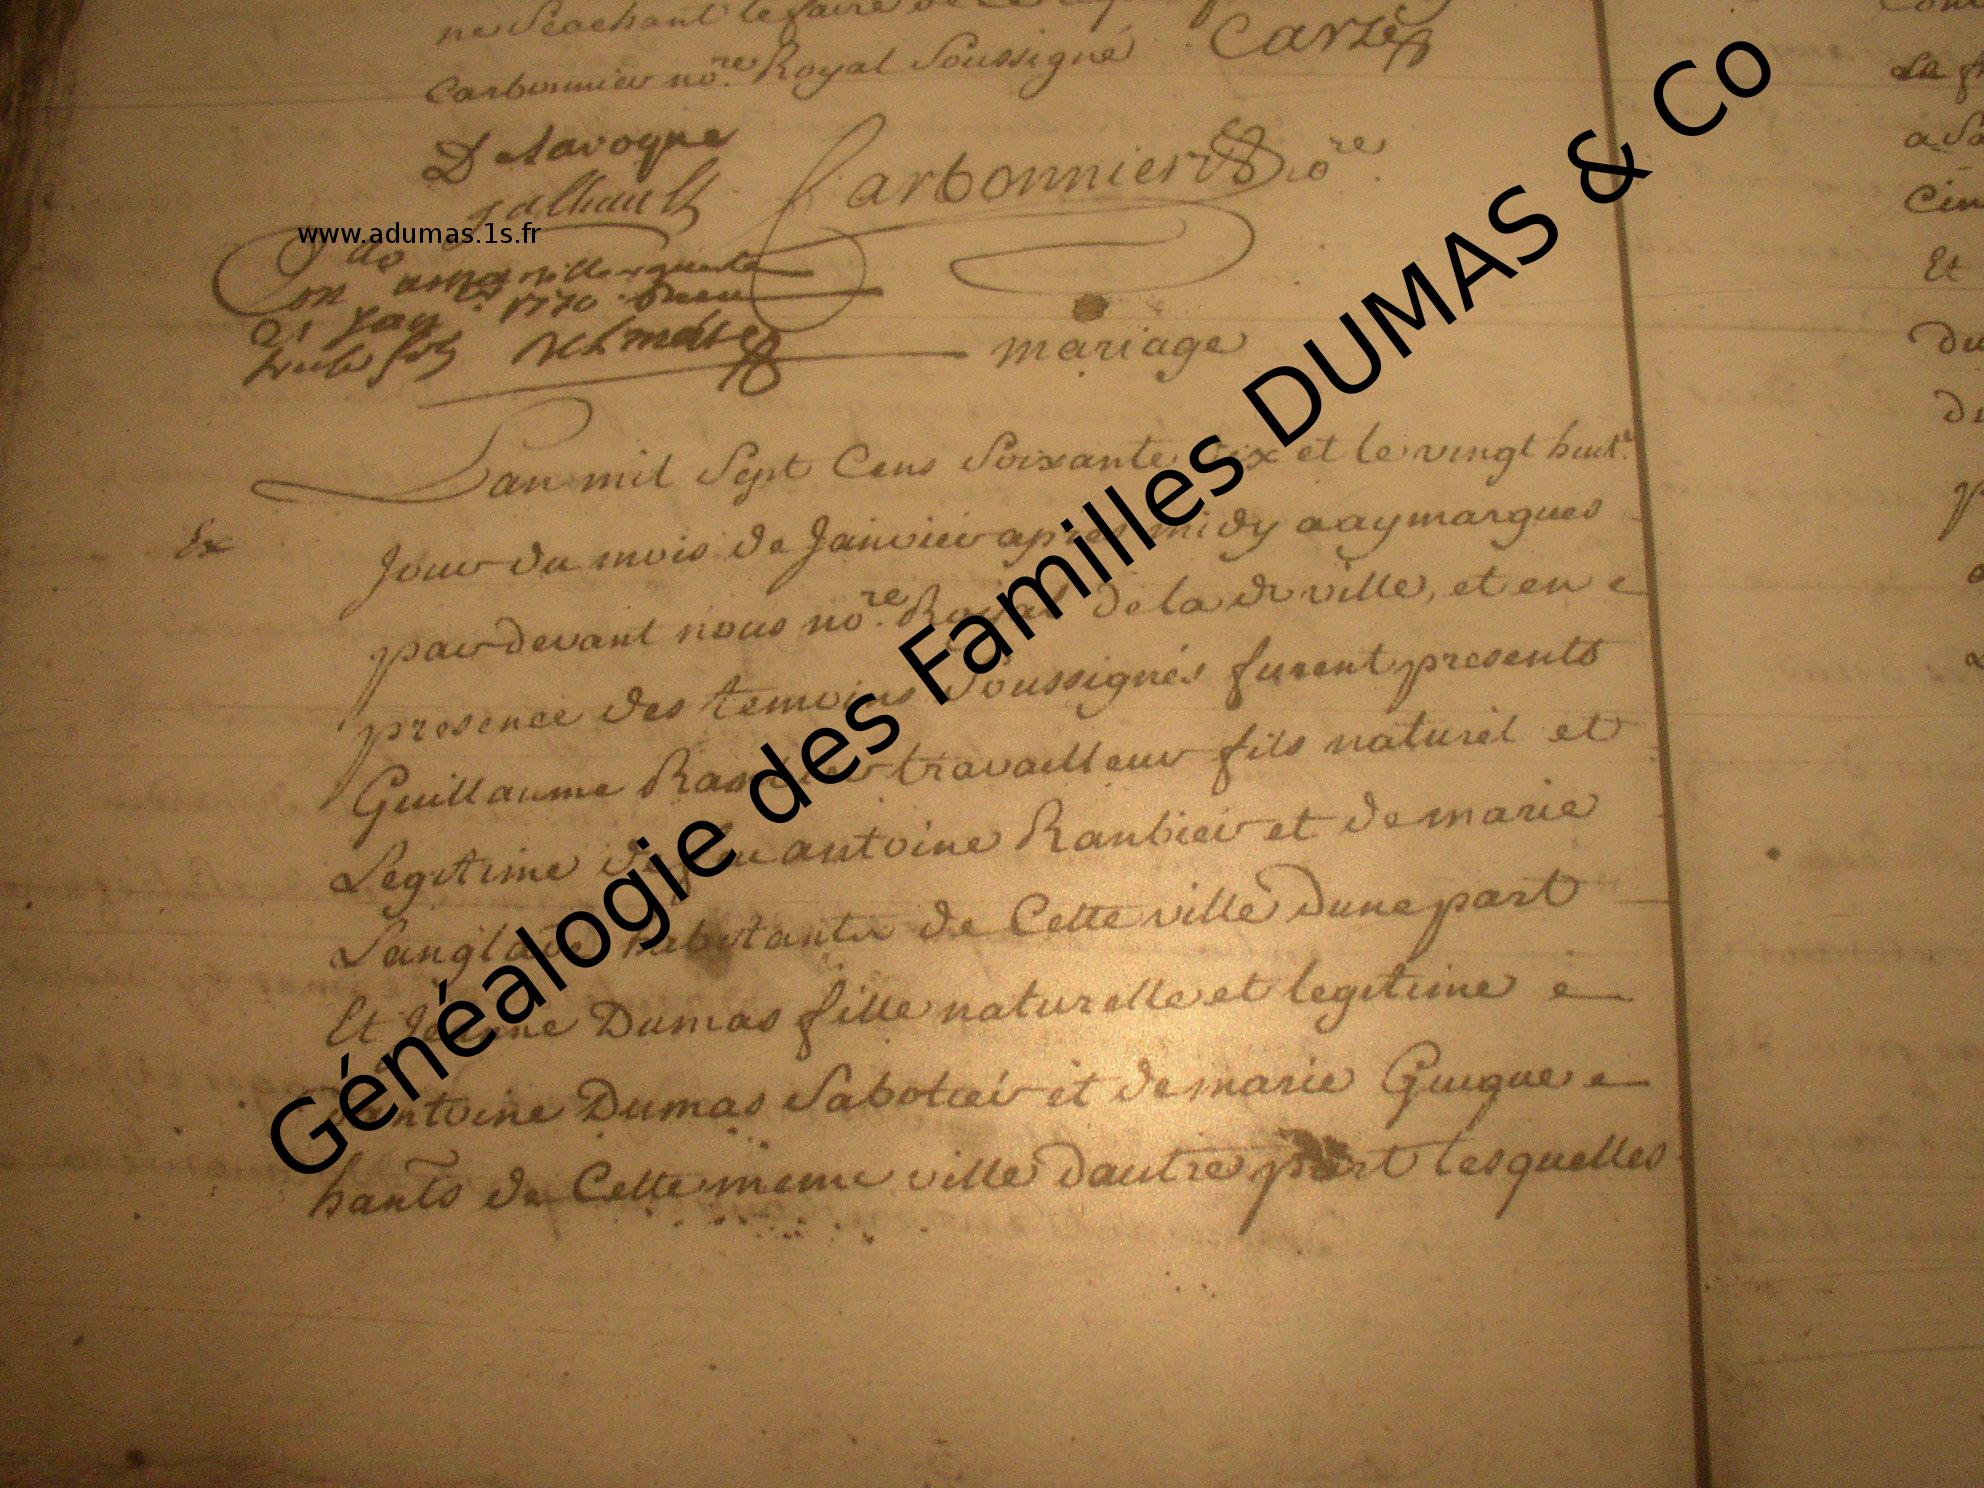 ne Scachant le faire de ce
Carbonnier no.re Royal Soussigné Carze
Delavogne
Jalhault Carbonnier no.re
www.adumas.1s.fr
21 Janv. 1770
mariage
Lan mil Sept Cens Soixante dix et le vingt huit.e
Ex
Jour du mois de Janvier apres midy a aymargues
par devant nous no.re Royal de la d ville, et en
presence des temoins Soussignés furent presents
Guillaume travailleur fils naturel et
Legitime de feu antoine Raubier et de marie
Langlade habitants de Cette ville dune part
Et Jeanne Dumas fille naturelle et legitime
Dantoine Dumas Sabotier et de marie Guigue
hants de Cette meme ville dautre part lesquelles
Généalogie des Familles DUMAS & Co
La
a Sa
Cin
Et
du